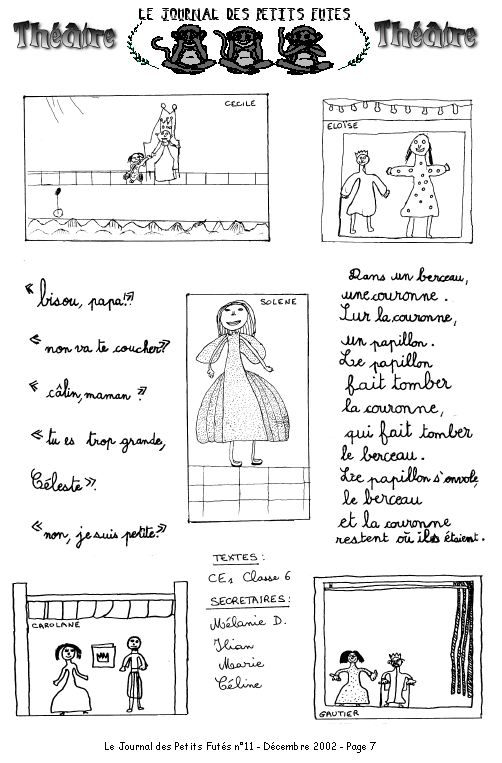 LE JOURNAL DES PETITS FUTES
Théâtre
Théâtre
CECILE
ELOÏSE
« bisou, papa!?»
« non va te coucher?»
« câlin, maman ?»
« tu es trop grande,
Céleste».
« non, je suis petite.»
SOLENE
Dans un berceau,
une couronne.
Sur la couronne,
un papillon.
Le papillon
fait tomber
la couronne,
qui fait tomber
le berceau.
Le papillon s'envole,
le berceau
et la couronne
restent où ils étaient.
TEXTES :
CE1 Classe 6
SECRETAIRES :
Mélanie D.
Ilian
Marie
Céline
CAROLANE
GAUTIER
Le Journal des Petits Futés n°11 - Décembre 2002 - Page 7